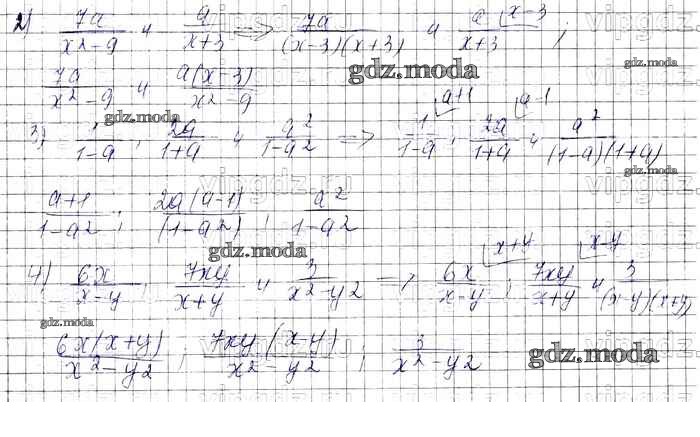 2) 7a/(x²-9) и a/(x+3) => 7a/((x-3)(x+3)) и a/(x+3) x-3 ;
7a/(x²-9) и a(x-3)/(x²-9)
gdz.moda
gdz.moda
3) /(1-a) ; 2a/(1+a) и a²/(1-a²) => 1/(1-a) a+1 ; 2a/(1+a) a-1 и a²/((1-a)(1+a))
gdz.moda
(a+1)/(1-a²) ; 2a(a-1)/(1-a²) ; a²/(1-a²)
gdz.moda
4) 6x/(x-y) ; 7xy/(x+y) и 3/(x²-y²) => 6x/(x-y) x+y ; 7xy/(x+y) x-y и 3/((x-y)(x+y))
gdz.moda
6x(x+y)/(x²-y²) ; 7xy(x-y)/(x²-y²) ; 3/(x²-y²)
gdz.moda